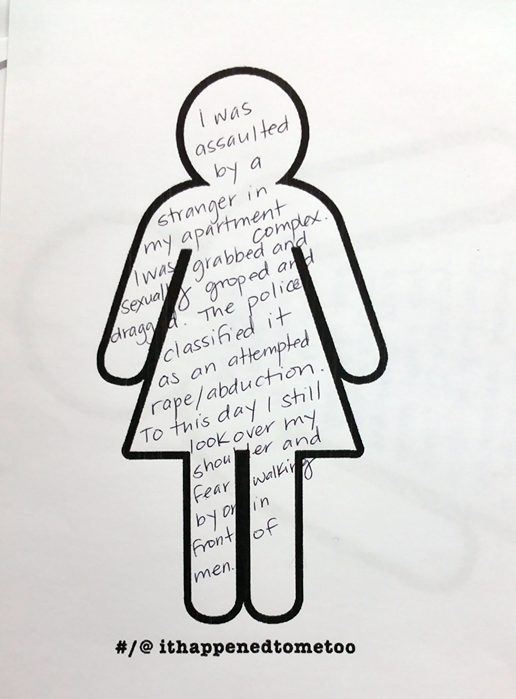 I was
assaulted
by a
stranger in
my apartment
complex.
I was grabbed and
sexually groped and
dragged. The police
classified it
as an attempted
rape/abduction.
To this day I still
look over my
shoulder and
fear walking
by or in
front of
men.
#/@ ithappenedtometoo